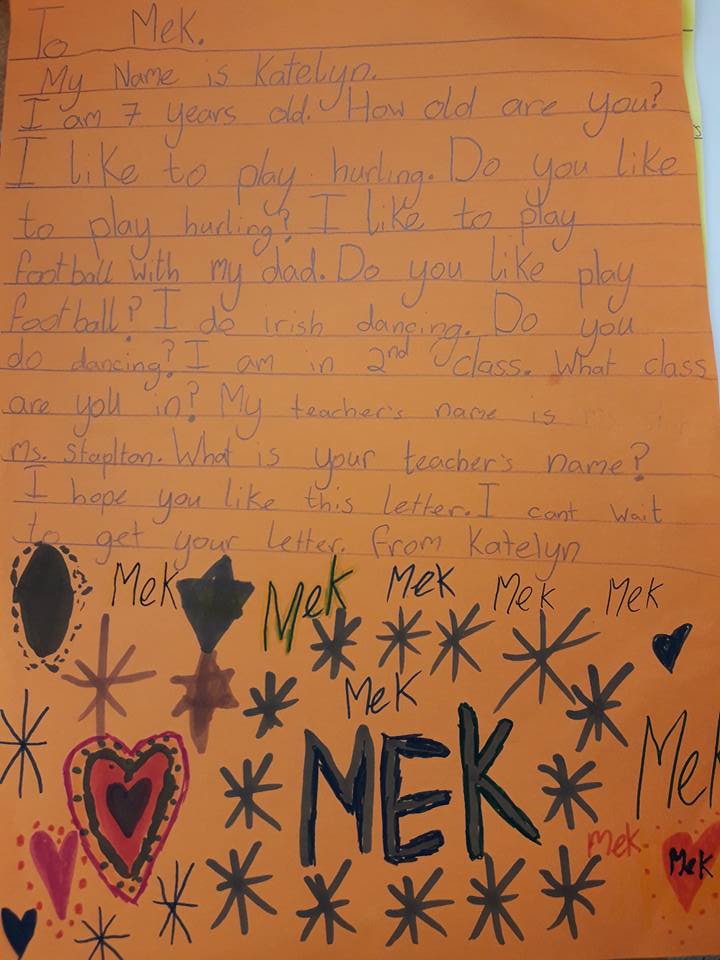 To Mek.
My Name is Katelyn.
I am 7 years old. How old are you?
I like to play hurling. Do you like
to play hurling? I like to play
football with my dad. Do you like play
football? I do irish dancing. Do you
do dancing? I am in 2nd class. What class
are you in? My teacher's name is
Ms. Staplton. What is your teacher's name?
I hope you like this letter. I cant wait
to get your letter. from Katelyn
Mek Mek Mek Mek Mek
Mek
MEK Mek
Mek
Mek